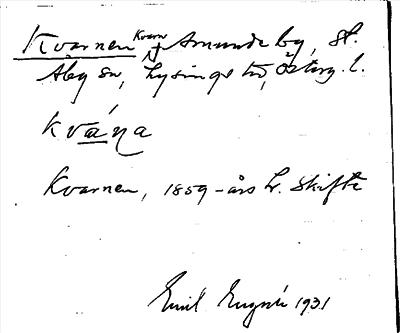 Kvarnen Kvarn Amundeby, St.
Åby sn, Lysings hd, Österg. l.
Kvá̱ṇa
Kvarnen, 1859-års L. Skifte
Emil 1931